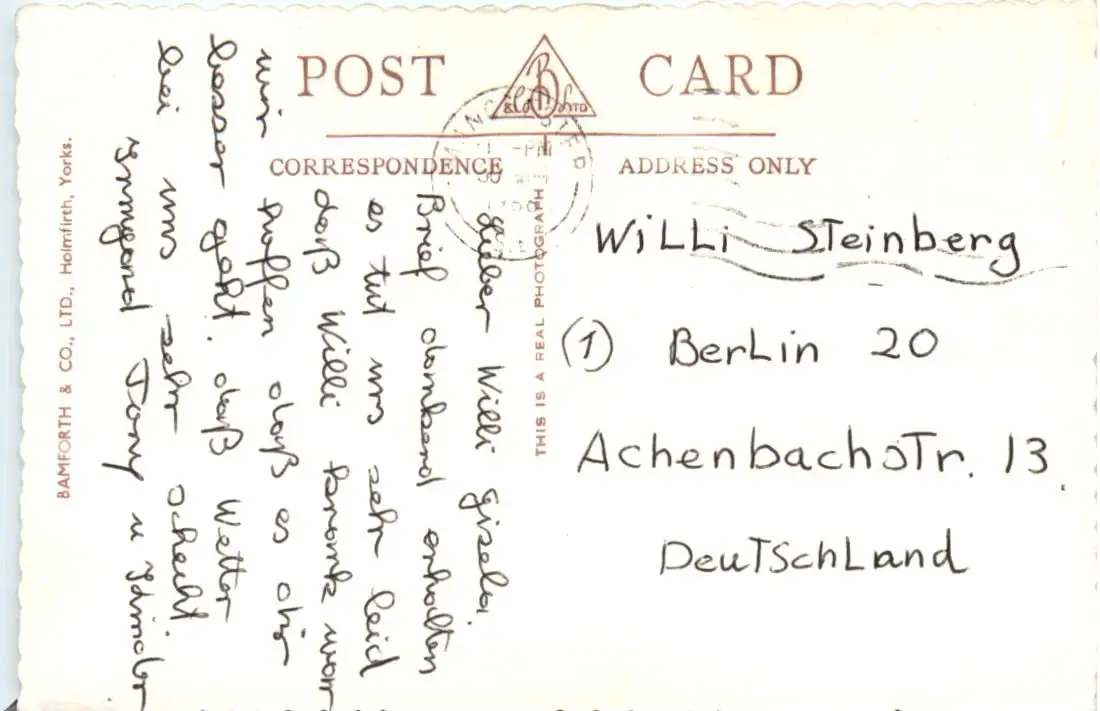 POST CARD
B & Co LTD
CORRESPONDENCE
ADDRESS ONLY
Lieber Willi Gisela.
Brief dankend erhalten
es tut uns sehr leid
daß Willi krank war
wir hoffen daß es dir
besser geht. daß Wetter
bei uns sehr schecht.
Irmgard Tony u Kinder
THIS IS A REAL PHOTOGRAPH
WiLLi STeinberg
(1) BerLin 20
AchenbachsTr. 13.
DeuTSchLand
BAMFORTH & CO., LTD., Holmfirth, Yorks.